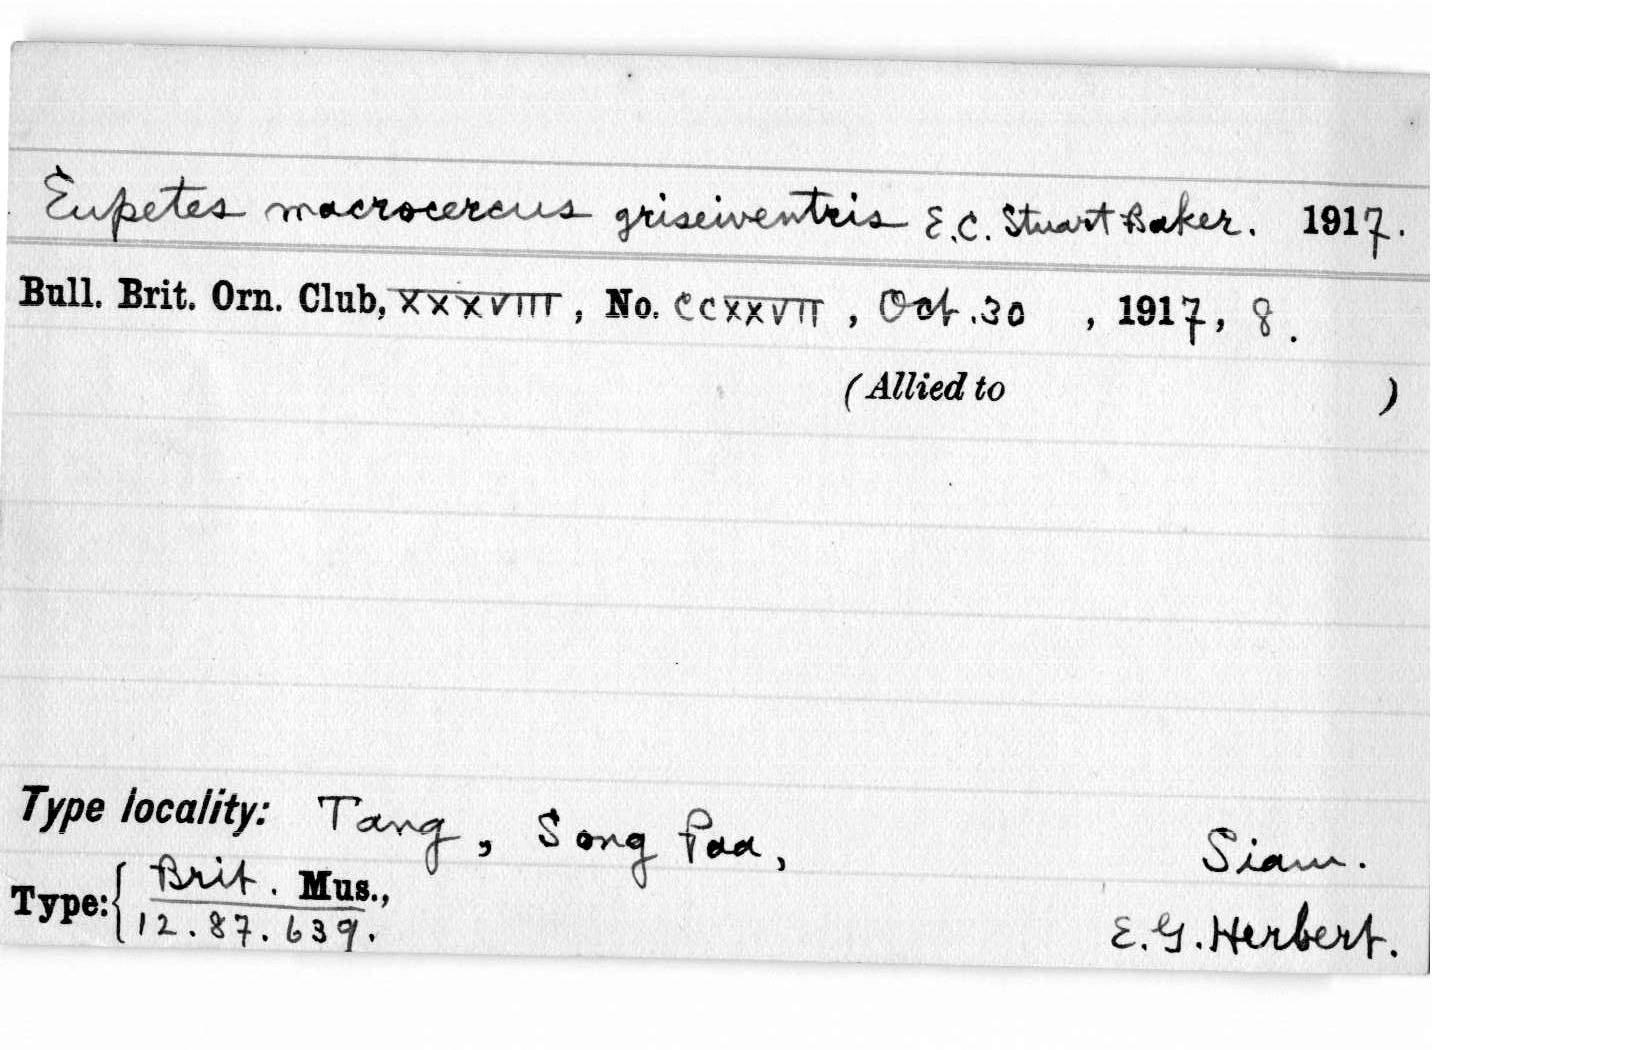 Eupetes macrocercus griseiventris E.C. Stuart Baker. 1917.
Bull. Brit. Orn. Club, XXXVIII, No. CCXXVII, Oct. 30, 1917, 8.
(Allied to )
Type locality: Tang, Song Paa, Siam.
Type: { Brit. Mus., E.G. Herbert.
12.87.639.